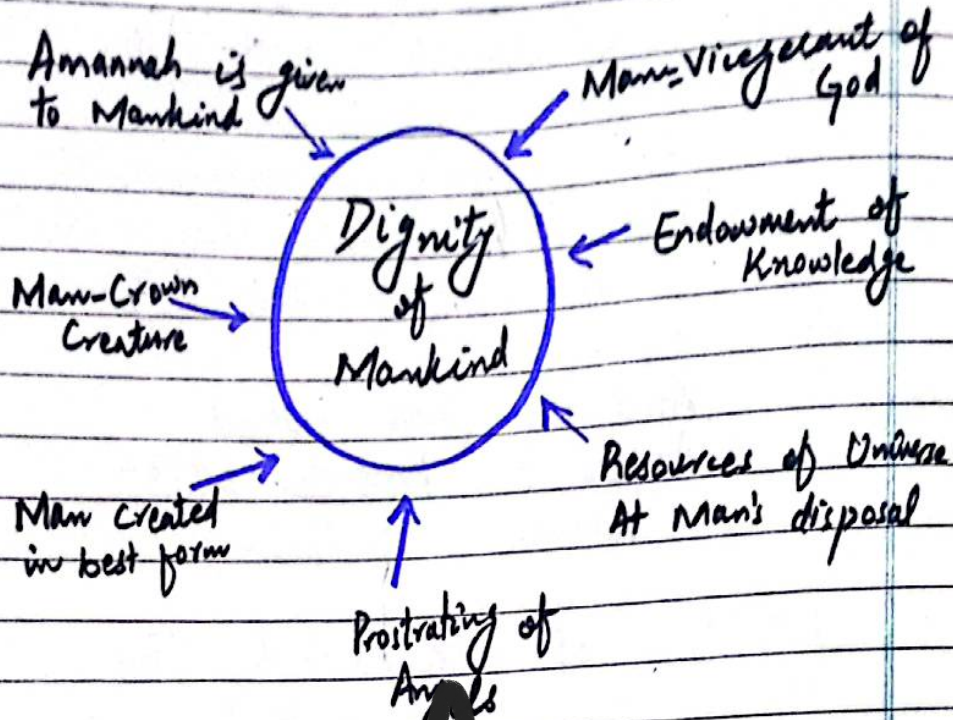 Amannah is given
to Mankind
Man=Vicegerant of
God
Dignity
of
Mankind
Endowment of
Knowledge
Man-Crown
Creature
Resources of Universe
At Man's disposal
Man created
in best form
Prostrating of